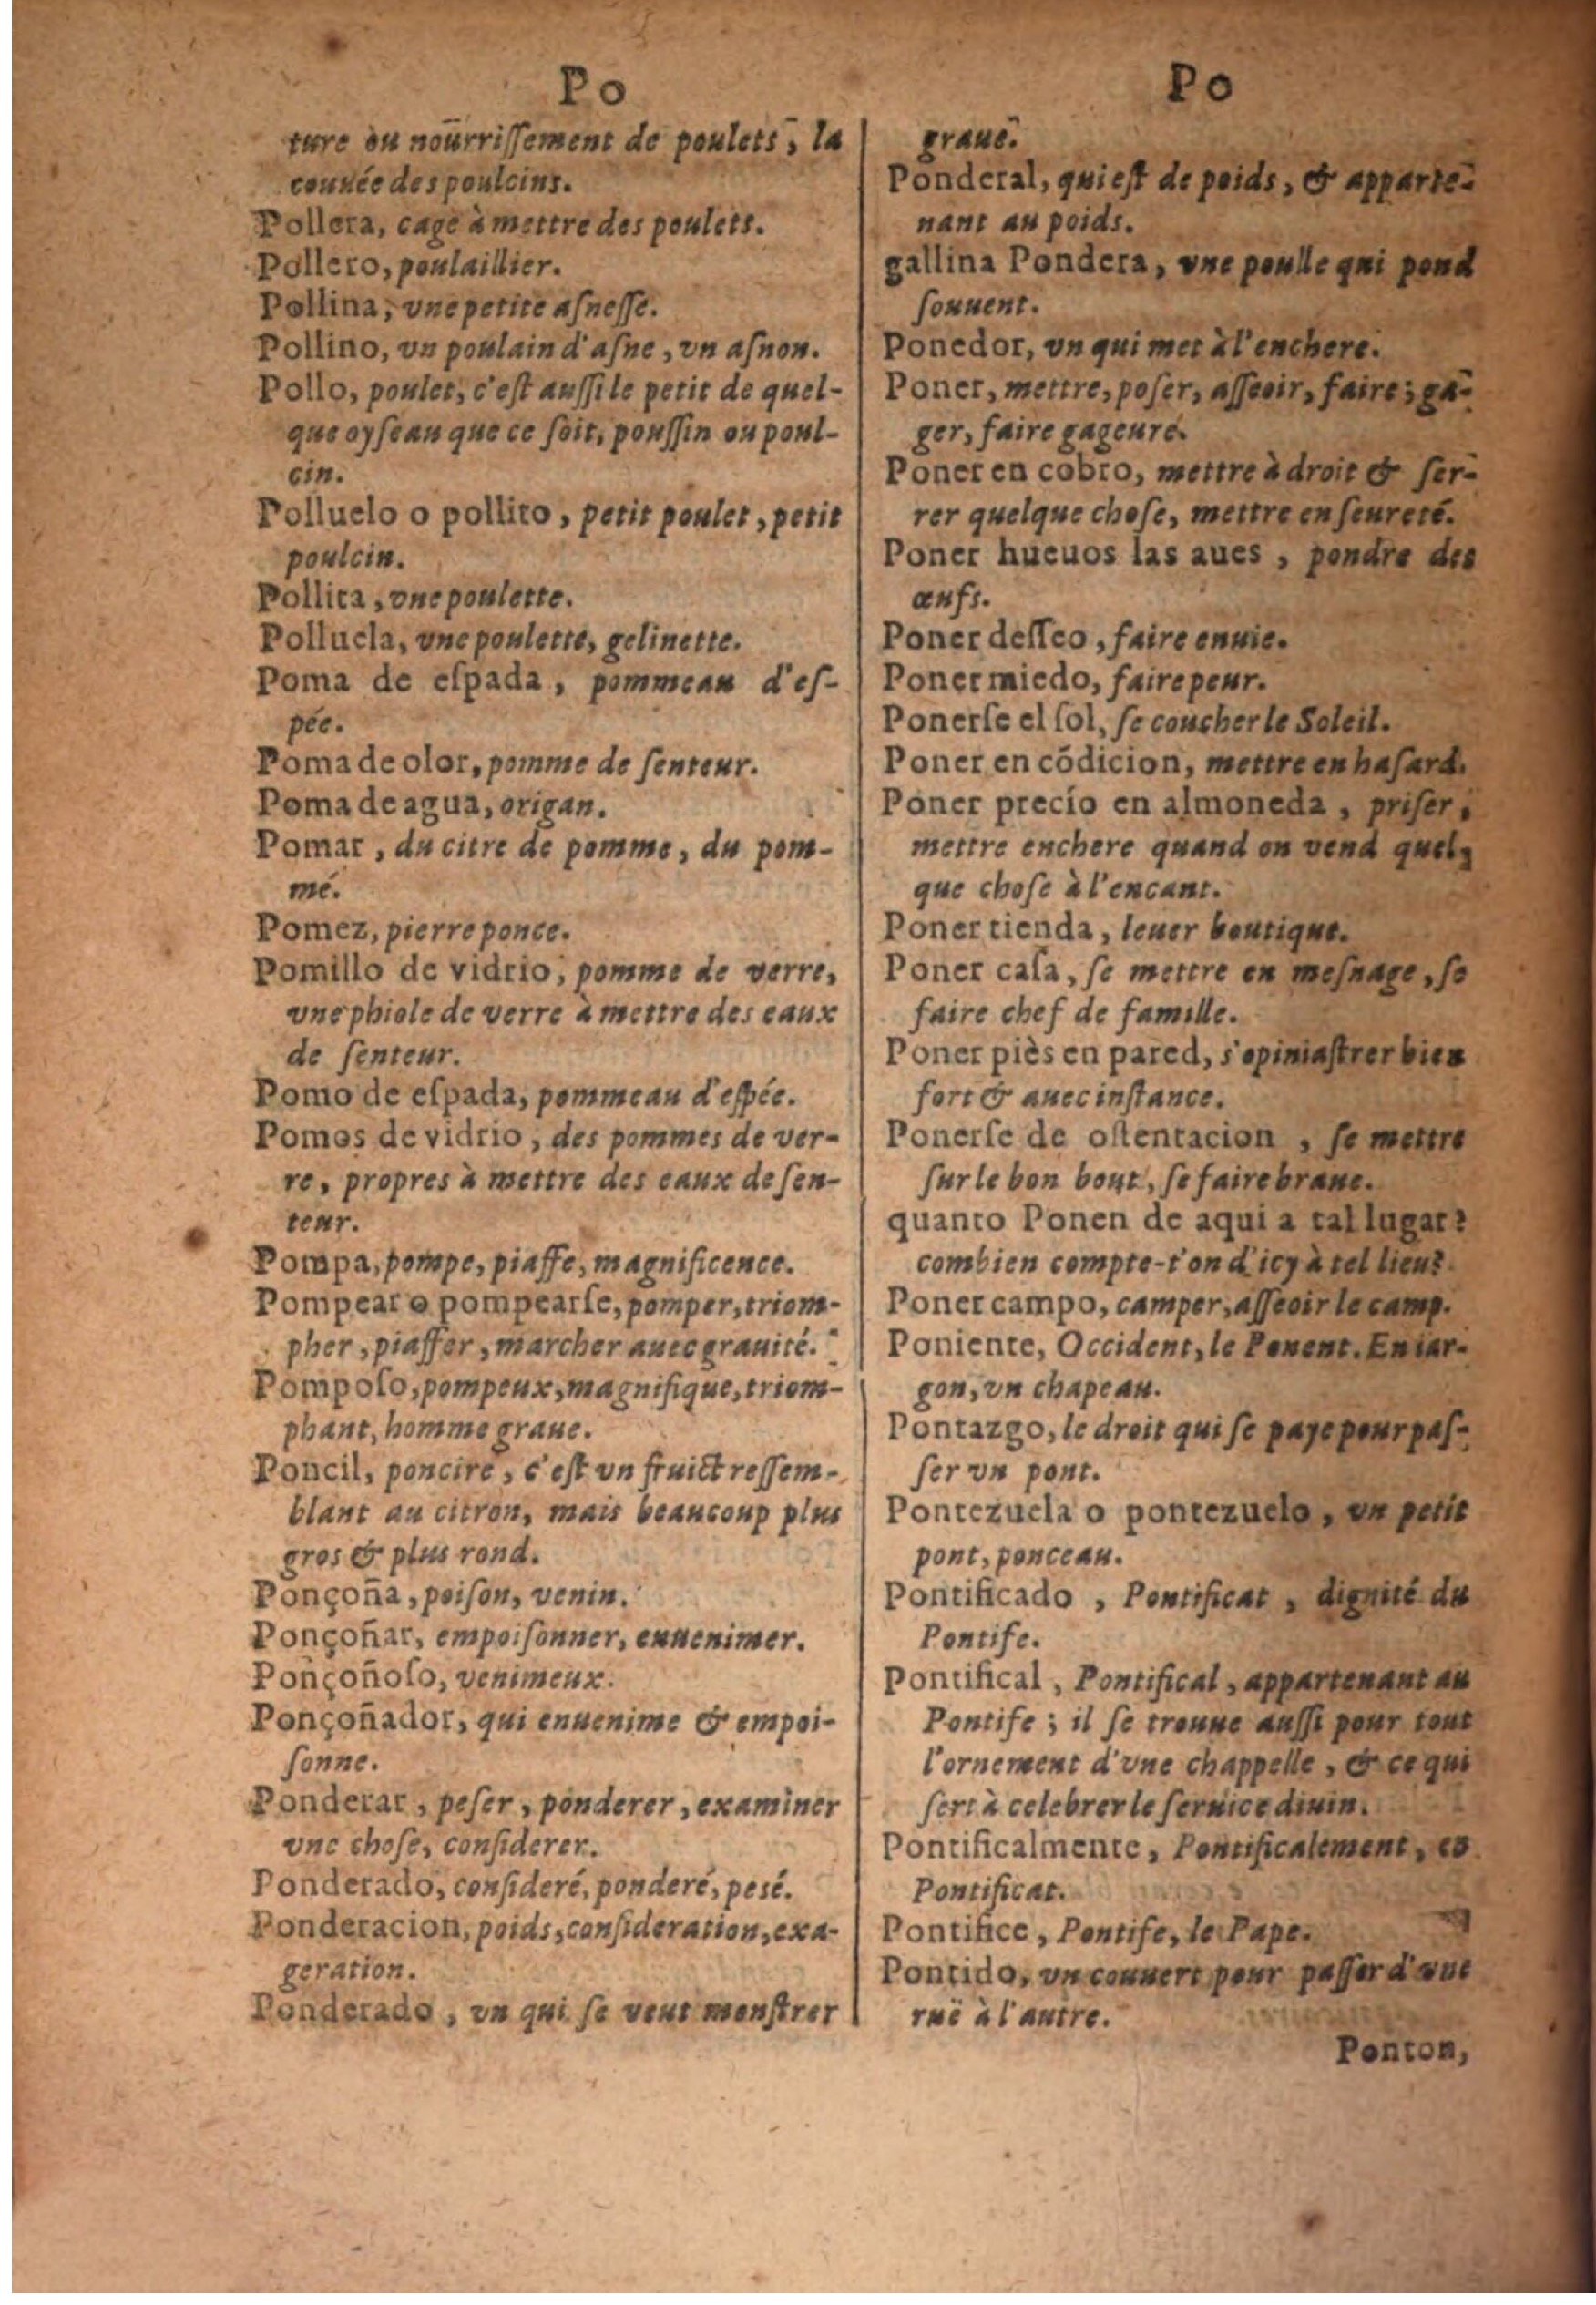 Po
ture ou nourrissement de poulets, la
couuée des poulcins.
Pollera, cage à mettre des poulets.
Pollero, poulaillier.
Pollina, vne petite asnesse.
Pollino, vn poulain d'asne, vn asnon.
Pollo, poulet, c'est aussi le petit de quel-
que oyseau que ce soit, poussin ou poul-
cin.
Polluelo o pollito, petit poulet, petit
poulcin.
Pollita, vne poulette.
Polluela, vne poulette, gelinette.
Poma de eſpada, pommeau d'eſ-
pée.
Poma de olor, pomme de ſenteur.
Poma de agua, origan.
Pomar, du citre de pomme, du pom-
mé.
Pomez, pierre ponce.
Pomillo de vidrio, pomme de verre,
vne phiole de verre à mettre des eaux
de ſenteur.
Pomo de eſpada, pommeau d'eſpée.
Pomos de vidrio, des pommes de ver-
re, propres à mettre des eaux de ſen-
teur.
Pompa, pompe, piaffe, magnificence.
Pompear o pompearſe, pomper, triom-
pher, piaffer, marcher auec grauité.
Pompoſo, pompeux, magnifique, triom-
phant, homme graue.
Poncil, poncire, c'eſt vn fruict reſſem-
blant au citron, mais beaucoup plus
gros & plus rond.
Ponçoña, poiſon, venin.
Ponçoñar, empoiſonner, enuenimer.
Ponçoñoſo, venimeux.
Ponçoñador, qui enuenime & empoi-
ſonne.
Ponderar, peſer, ponderer, examiner
vne choſe, conſiderer.
Ponderado, conſideré, ponderé, pesé.
Ponderacion, poids, conſideration, exa-
geration.
Ponderado, vn qui ſe veut monſtrer
Po
graue.
Ponderal, qui eſt de poids, & apparte-
nant au poids.
gallina Pondera, vne poulle qui pond
ſouuent.
Ponedor, vn qui met à l'enchere.
Poner, mettre, poſer, aſſeoir, faire; ga-
ger, faire gageure.
Poner en cobro, mettre à droit & ſer-
rer quelque choſe, mettre en ſeureté.
Poner hueuos las aues, pondre des
œufs.
Poner deſſeo, faire enuie.
Poner miedo, faire peur.
Ponerſe el ſol, ſe coucher le Soleil.
Poner en cõdicion, mettre en haſard.
Poner precío en almoneda, priſer,
mettre enchere quand on vend quel-
que choſe à l'encant.
Poner tienda, leuer boutique.
Poner caſa, ſe mettre en meſnage, ſe
faire chef de famille.
Poner piès en pared, s'opiniaſtrer bien
fort & auec inſtance.
Ponerſe de oſtentacion, ſe mettre
ſur le bon bout, ſe faire braue.
quanto Ponen de aqui a tal lugar?
combien compte-t'on d'icy à tel lieu?
Poner campo, camper, aſſeoir le camp.
Poniente, Occident, le Ponent. En iar-
gon, vn chapeau.
Pontazgo, le droit qui ſe paye pour paſ-
ſer vn pont.
Pontezuela o pontezuelo, vn petit
pont, ponceau.
Pontificado, Pontificat, dignité du
Pontife.
Pontifical, Pontifical, appartenant au
Pontife; il ſe trouue auſſi pour tout
l'ornement d'vne chappelle, & ce qui
ſert à celebrer le ſeruice diuin.
Pontificalmente, Pontificalement, en
Pontificat.
Pontifice, Pontife, le Pape.
Pontido, vn couuert pour paſſer d'vne
ruë à l'autre.
Ponton,